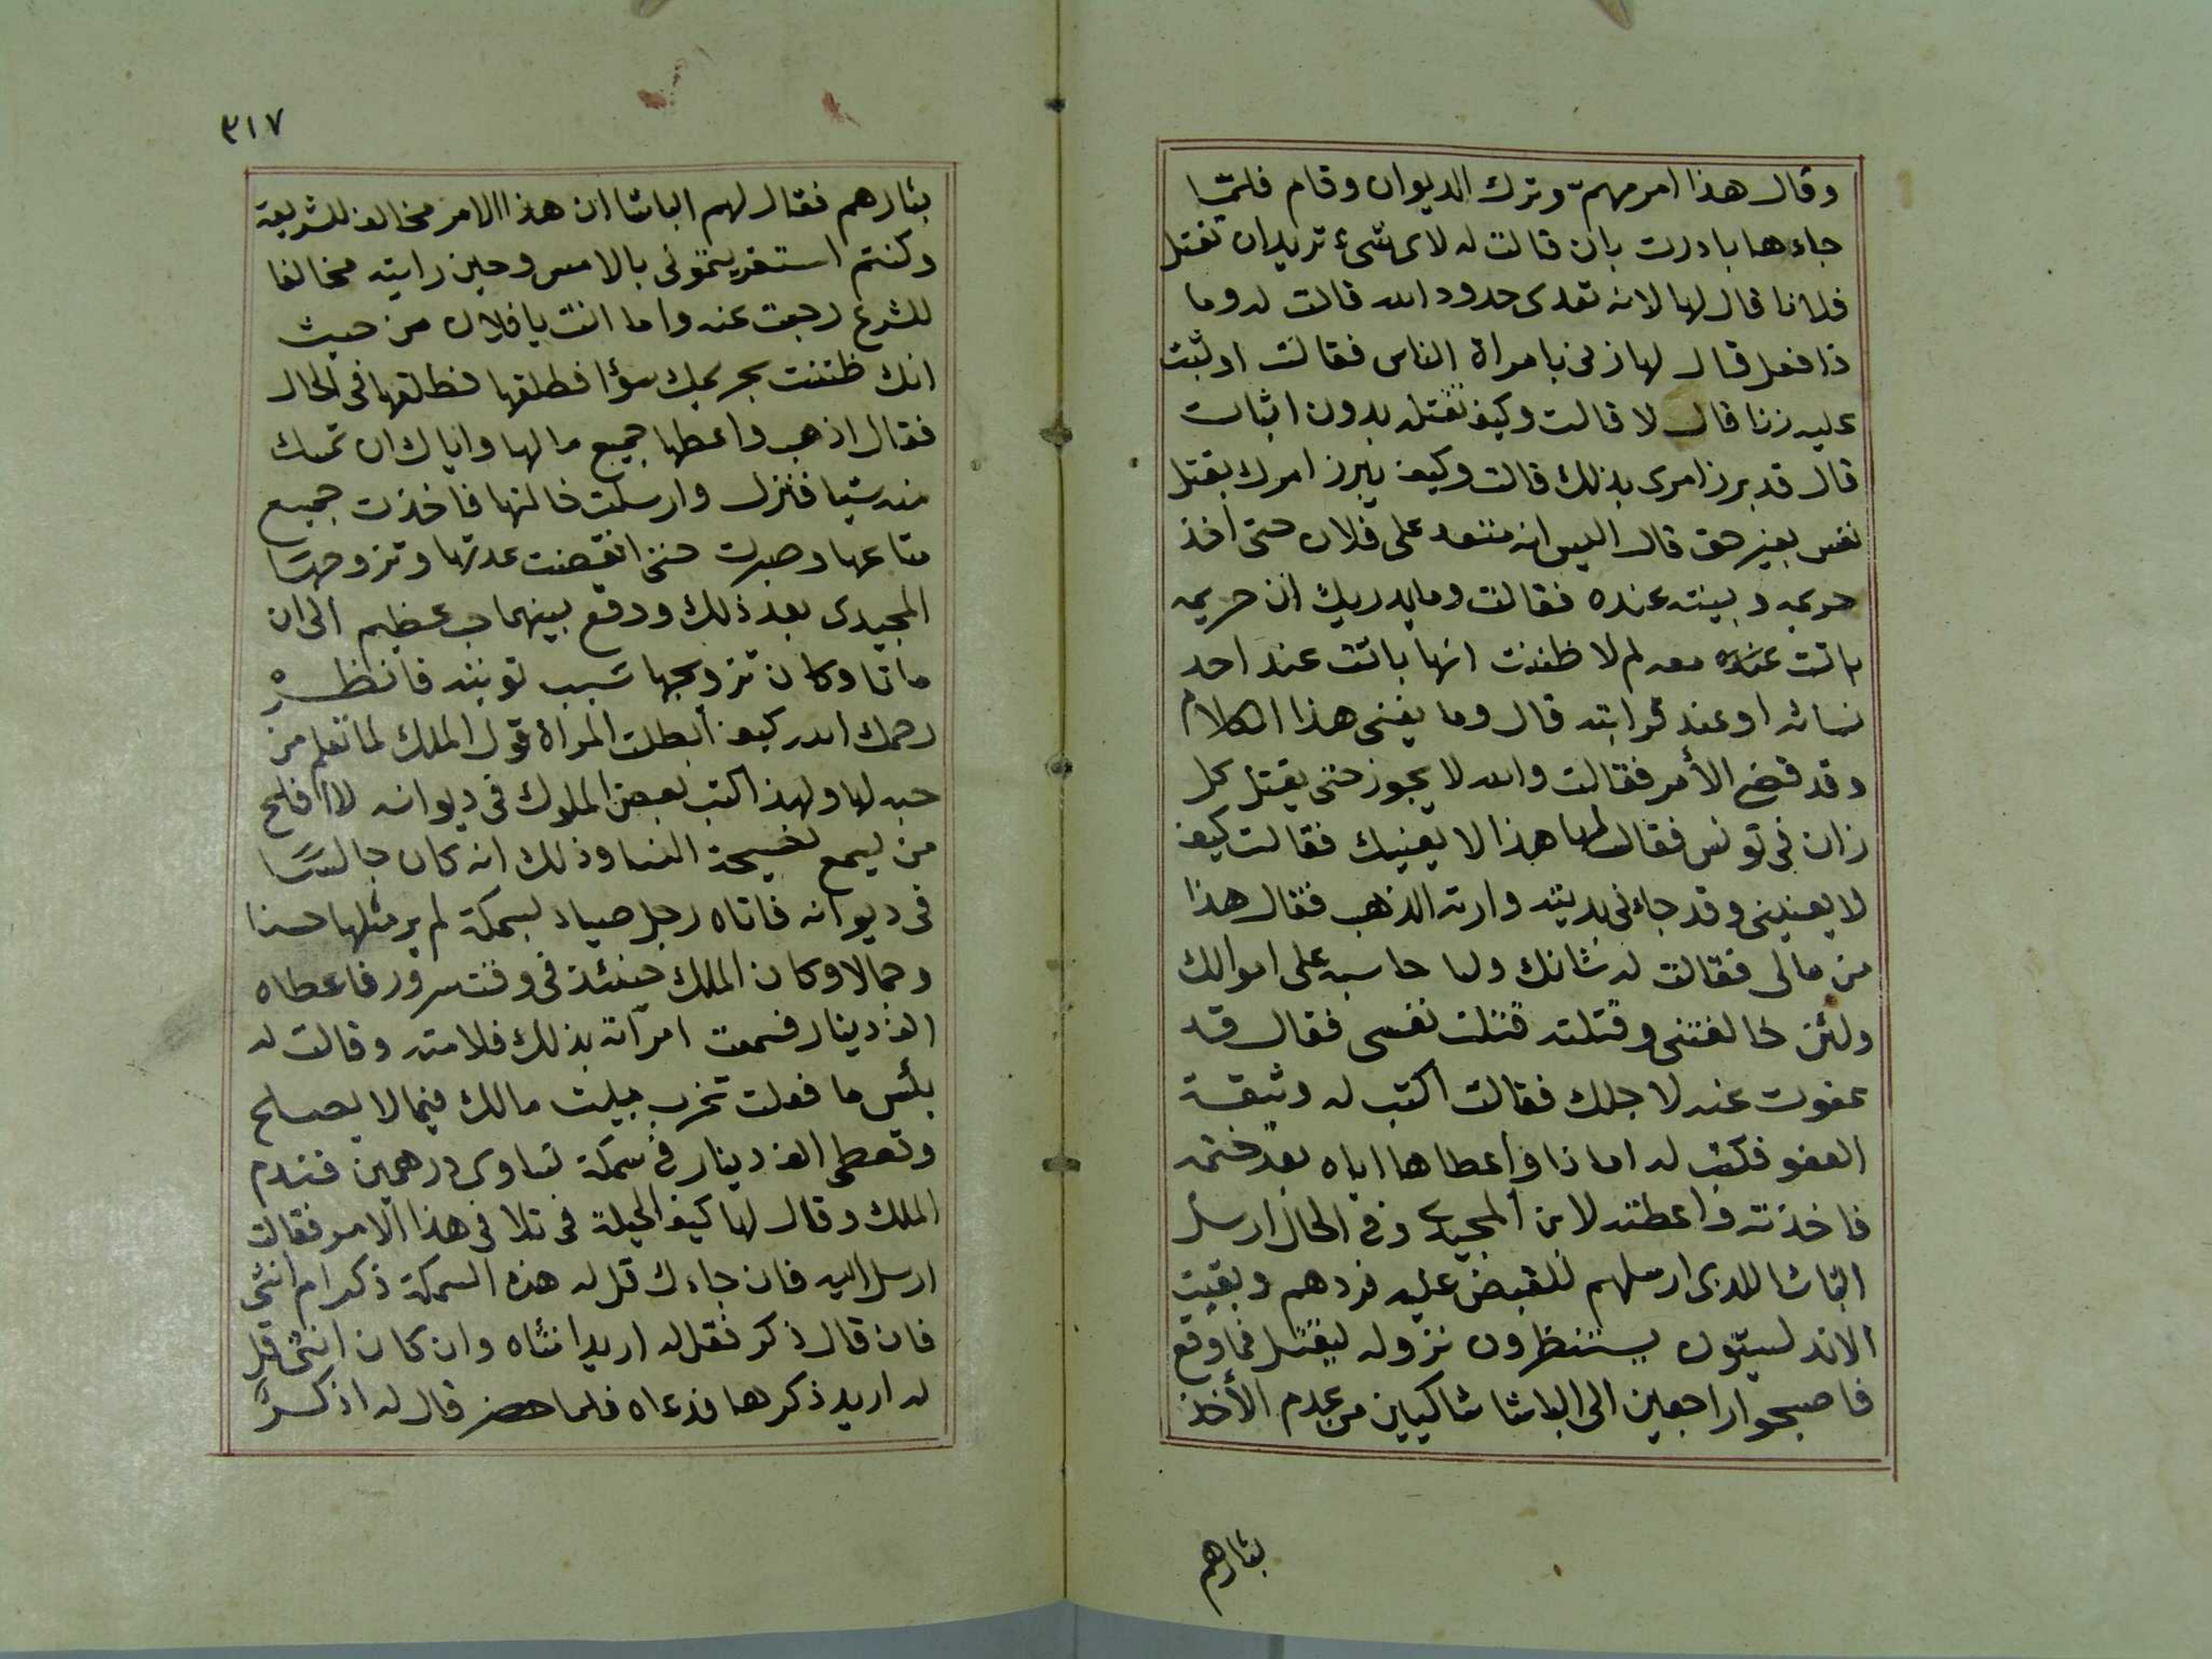 وقال هذا امر مهم وترك الديوان وقام فلمّا
جاءها بادرت بان قالت له لاى شىء تريد ان تقتل
فلانا قال لها لانه تعدى حدود الله قالت له وما
ذا فعل قال لها زنى بامراة الناس فقالت او ثبت
عليه زنا قال لا قالت وكيف تقتله بدون اثبات
قال قد برز امرى بذلك قالت وكيف يبرز امرك بقتل
نفس بغير حق قال اليس انه متعد على فلان حتى اخذ
حريمه وبيته عنده فقالت وما يدريك ان حريمه
باتت عنده معه لم لا ظننت انها باتت عند احد
نسائه او عند قرابته قال وما يغنى هذا الكلام
وقد قضى الأمر فقالت والله لا يجوز حتى يقتل كل
زان فى تونس فقال لها هذا لا يعنيك فقالت كيف
لا يعنينى وقد جاءنى بديته وارته الذهب فقال هذا
من مالى فقالت له شانك ولما حاسبه على اموالك
ولئن خالفتنى وقتلته قتلت نفسى فقال قد
عفوت عنه لاجلك فقالت اكتب له وثيقة
العفو فكتب له امانا واعطاها اياه بعد ختمه
فاخذته واعطته لامن المجيدى وفى الحال ارسل
الباشا للذى ارسلهم للقبض عليه فردهم وبقيت
الاندلسيّون يستنظرون نزوله ليقتل فما وقع
فاصبحوا راجعين الى الباشا شاكيين من عدم الأخذ
بثارهم
٣١٧
بثارهم فقال لهم الباشا ان هذا الامر مخالف للشريعة
وكنتم استفزيتمونى بالامس وحين رايته مخالفا
للشرع رجعت عنه واما انت يا فلان من حيث
انك ظننت بحريمك سؤا فطلقها فطلقها فى الحال
فقال اذهب واعطها جميع مالها واياك ان تمسك
منه شيا فنزل وارسلت خالتها فاخذت جميع
متاعها وصبرت حتى انقضت عدتها وتزوجها
المجيدى بعد ذلك ووقع بينهما حب عظيم الى ان
ماتا وكان تزوجها سبب توبته فانظر
رحمك الله كيف ابطلت المراة قول الملك لما تعلم من
حبه لها ولهذا كتب بعض الملوك فى ديوانه لا افلح
من يسمع نصيحة النسا وذلك انه كان جالسًا
فى ديوانه فاتاه رجل صياد بسمكة لم ير مثلها حسنا
وجمالا وكان الملك حينئذ فى وقت سرور فاعطاه
الف دينار فسمعت امرأته بذلك فلامته وقالت له
بئس ما فعلت تخرب بيت مالك فيما لا يصلح
وتعطى الف دينار فى سمكة تساوى درهمين فندم
الملك وقال لها كيف الحيلة فى تلافى هذا الامر فقالت
ارسل اليه فان جاءك قل له هذه السمكة ذكر ام انثى
فان قال ذكر فقل له اريد انثاه وان كان انثى قل
له اريد ذكرها فدعاه فلما حضر قال له اذكرٌ